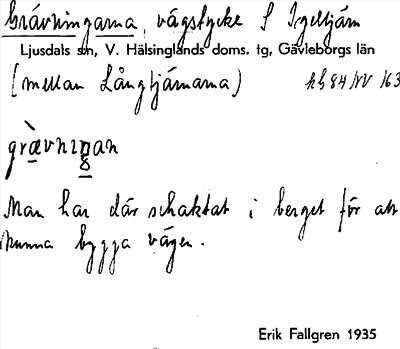 Grävningarna, vägstycke S Igeltjärn
Ljusdals sn, V. Hälsinglands doms. tg, Gävleborgs län
(mellan Långtjärnarna) hb 84 NV 163
grævnıŋan
Man har där schaktat i berget för att
kunna bygga vägen.
Erik Fallgren 1935